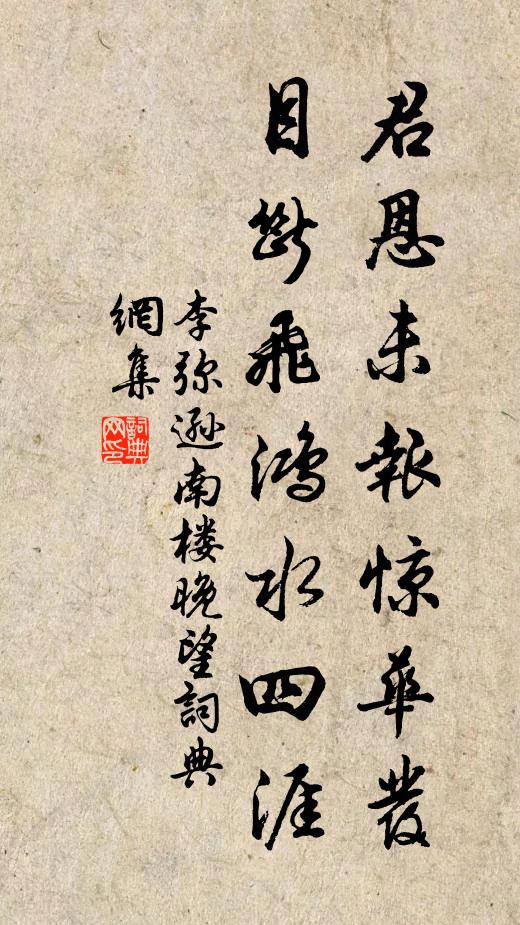 君恩未報惊華發
目斷飛鴻水四涯
李弥遜南楼晚望詞典
網集
詞典
网印